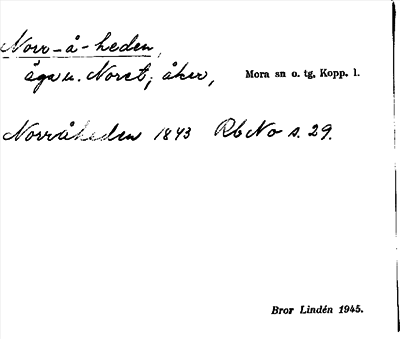 Norr-å-heden,
äga u. Noret; åker, Mora sn o. tg, Kopp. l.
Norråheden 1843 RbNo s. 29.
Bror Lindén 1945.